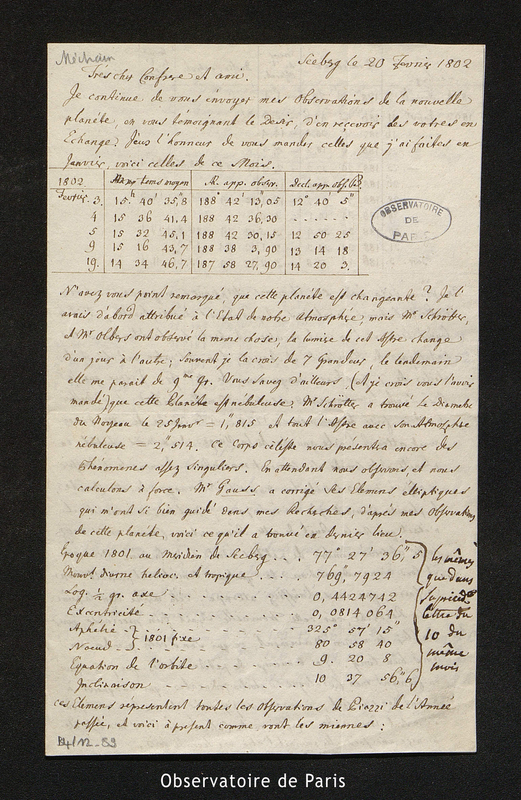 Méchain
Seeberg le 20 Fevrier 1802
Très cher Confrere et ami.
Je continue de vous envoyer mes Observations de la nouvelle
planète, en vous témoignant le Desir, d'en recevoir des votres en
Echange. J'eus l'honneur de vous mander celles que j'ai faites en
Janvier, voici celles de ce Mois.
1802 tems moyen Æ. app. observ. Decl. app. obs. B.
Fevrier. 3. 15h 40' 35",8 188° 42' 13,05 12° 40' 5"
4 15 36 41,4 188 42 36,30 - - - - - -
5 15 32 45,1 188 42 30,15 12 50 25
9 15 16 43,7 188 38 3,90 13 14 18
19. 14 34 46,7 187 58 27,90 14 20 3.
OBSERVATOIRE
DE
PARIS
N'avez vous point remarqué, que cette planète est changeante? Je l'
avais d'abord attribué à l'Etat de notre Atmosphère, mais Mr Schröter,
et Mr Olbers ont observé la meme chose, la lumiere de cet Astre change
d'un jour à l'autre; souvent je la crois de 7 Grandeur, le lendemain
elle me parait de 9me Gr. Vous savez d'ailleurs, (et je crois vous l'avoir
mandé) que cette Planète est nébuleuse; Mr Schröter a trouvé le Diametre
du Noyeau le 25 Janvr = 1,"815 et tout l'Astre avec son Atmosphère
nébuleuse = 2,"514. Ce Corps céleste nous présentra encore des
Phenomenes assez singuliers. En attendant nous observons, et nous
calculons à force. Mr Gauss a corrigé ses Elemens elliptiques
qui m'ont si bien guidé dans mes Recherches, d'après mes Observations
de cette planète, voici ce qu'il a trouvé en Dernier lieu.
Epoque 1801. au Meridien de Seeberg . . . 77° 27' 36," 5
Mouvt. diurne helioc. et tropique . . . 769," 7924
Log. ½ gr. axe . . . 0, 4424742
Excentricité . . . 0, 0814064
Aphélie } 1801 fixe . . . 325° 57' 15"
Nœud . . . 80 58 40
Equation de l'orbite . . . 9. 20 8
Inclinaison . . . 10 37 56,"6
les mêmes
que dans
sa précédte
lettre du
10 du
même
mois
ces Elemens representent toutes les Observations de Piazzi de l'Année
passée, et voici à présent comme vont les miennes:
B4/12-89
Observatoire de Paris